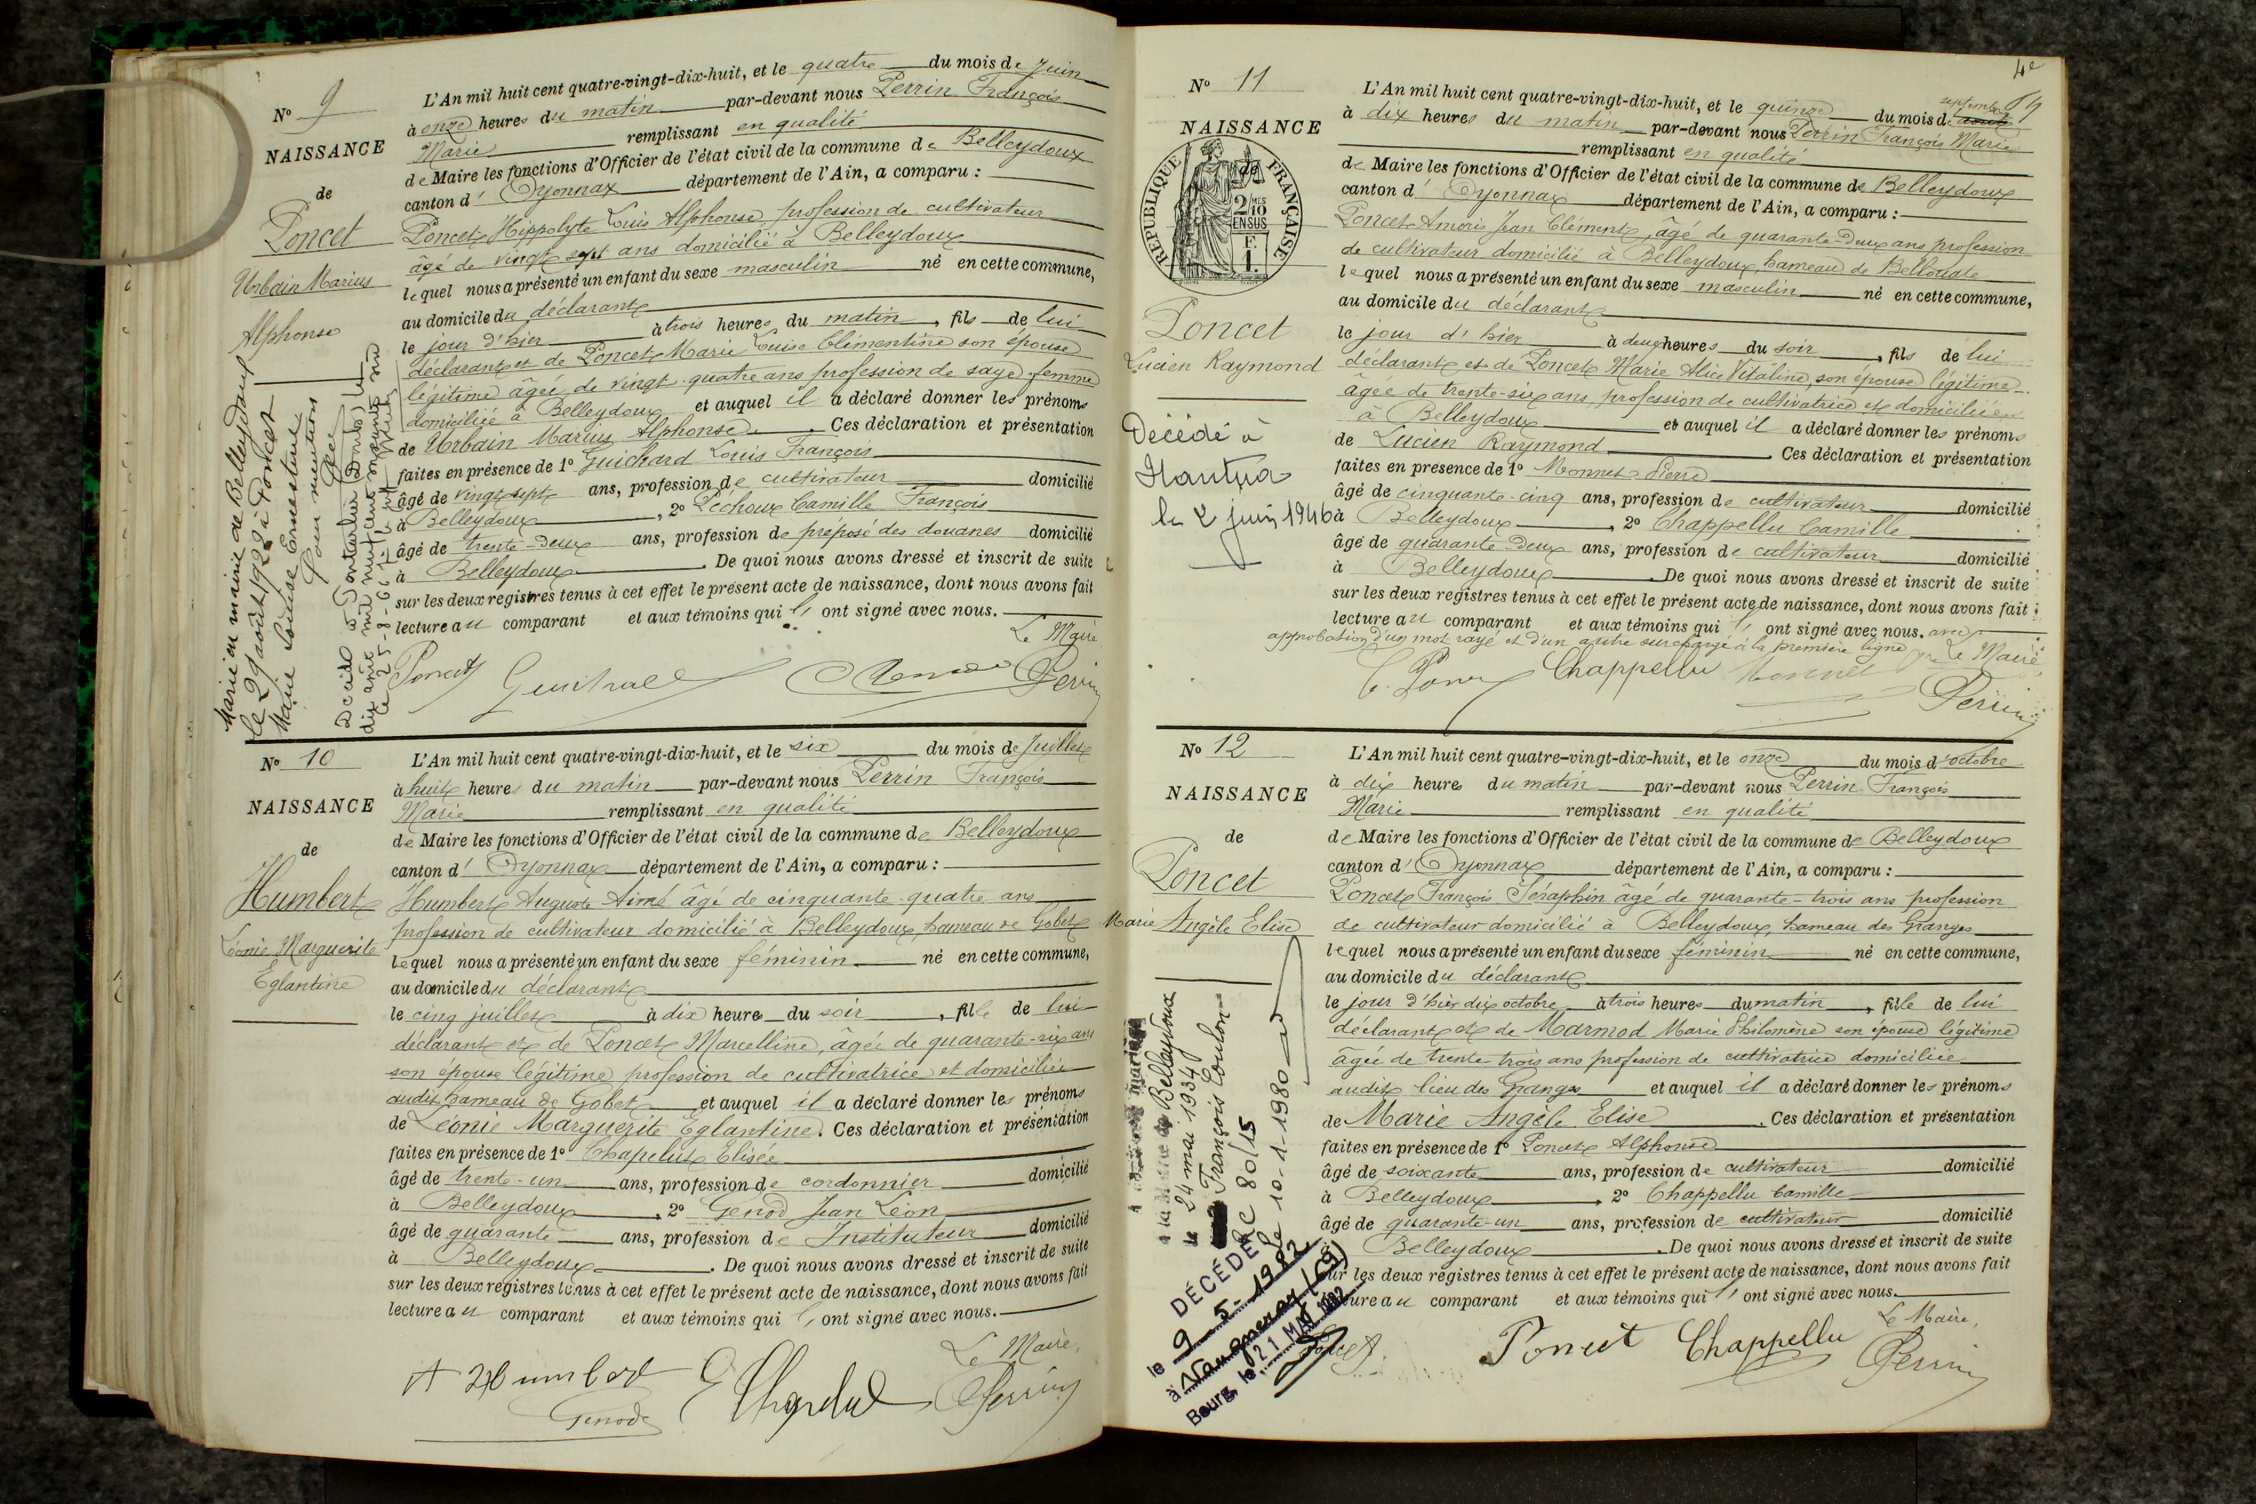 N° 9
NAISSANCE
de
Poncet
Urbain Marius
Alphonse
Marié en mairie de Belleydoux
le 29 août 1922 à Poncet
Marie Louise Ernestine
Pour mention
Décédé à Pontarlier (Doubs) le
dix août mil neuf cent soixante un
le 25-8-61
L'An mil huit cent quatre-vingt-dix-huit, et le quatre du mois de Juin
à onze heures du matin par-devant nous Perrin François
Marie remplissant en qualité
de Maire les fonctions d'Officier de l'état civil de la commune de Belleydoux
canton d' Oyonnax département de l'Ain, a comparu :
Poncet Hippolyte Louis Alphonse profession de cultivateur
âgé de vingt sept ans domicilié à Belleydoux
lequel nous a présenté un enfant du sexe masculin né en cette commune,
au domicile du déclarant
le jour d'hier à trois heures du matin, fils de lui
déclarant et de Poncet Marie Louise Clémentine son épouse
légitime âgée de vingt-quatre ans profession de sage-femme
domiciliée à Belleydoux et auquel il a déclaré donner les prénoms
de Urbain Marius Alphonse. Ces déclaration et présentation
faites en présence de 1° Guichard Louis François
âgé de vingt sept ans, profession de cultivateur domicilié
à Belleydoux, 2° Péchoux Camille François
âgé de trente-deux ans, profession de préposé des douanes domicilié
à Belleydoux. De quoi nous avons dressé et inscrit de suite
sur les deux registres tenus à cet effet le présent acte de naissance, dont nous avons fait
lecture au comparant et aux témoins qui ont signé avec nous.
Le Maire
Poncet Perrin
N° 10
NAISSANCE
de
Humbert
Léonie Marguerite
Eglantine
L'An mil huit cent quatre-vingt-dix-huit, et le six du mois de Juillet
à huit heures du matin par-devant nous Perrin François
Marie remplissant en qualité
de Maire les fonctions d'Officier de l'état civil de la commune de Belleydoux
canton d' Oyonnax département de l'Ain, a comparu :
Humbert Auguste Aimé âgé de cinquante quatre ans
profession de cultivateur domicilié à Belleydoux, hameau de Gobet
lequel nous a présenté un enfant du sexe féminin né en cette commune,
au domicile du déclarant
le cinq juillet à dix heures du soir, fille de lui
déclarant et de Poncet Marcelline, âgée de quarante-six ans
son épouse légitime profession de cultivatrice et domiciliée
audit hameau de Gobet et auquel il a déclaré donner les prénoms
de Léonie Marguerite Eglantine. Ces déclaration et présentation
faites en présence de 1° Chapelut Elisée
âgé de trente-un ans, profession de cordonnier domicilié
à Belleydoux, 2° Genod Jean Léon
âgé de quarante ans, profession de Instituteur domicilié
à Belleydoux. De quoi nous avons dressé et inscrit de suite
sur les deux registres tenus à cet effet le présent acte de naissance, dont nous avons fait
lecture au comparant et aux témoins qui ont signé avec nous.
Le Maire,
A Humbert E Chapelut Perrin
Genod
4e
N° 11
NAISSANCE
de
RÉPUBLIQUE FRANÇAISE
2/10 MES
EN SUS
F.
1.
Poncet
Lucien Raymond
Décédé à
Nantua
le 2 juin 1946
L'An mil huit cent quatre-vingt-dix-huit, et le quinze du mois de août septembre
à dix heures du matin par-devant nous Perrin François Marie
remplissant en qualité
de Maire les fonctions d'Officier de l'état civil de la commune de Belleydoux
canton d' Oyonnax département de l'Ain, a comparu :
Poncet Amoris Jean Clément, âgé de quarante-deux ans profession
de cultivateur domicilié à Belleydoux, hameau de Bellouate
lequel nous a présenté un enfant du sexe masculin né en cette commune,
au domicile du déclarant
le jour d'hier à deux heures du soir, fils de lui
déclarant et de Poncet Marie Alice Vitaline, son épouse légitime
âgée de trente-six ans, profession de cultivatrice et domiciliée
à Belleydoux et auquel il a déclaré donner les prénoms
de Lucien Raymond. Ces déclaration et présentation
faites en présence de 1° Monnet Pierre
âgé de cinquante-cinq ans, profession de cultivateur domicilié
à Belleydoux, 2° Chappellu Camille
âgé de quarante deux ans, profession de cultivateur domicilié
à Belleydoux. De quoi nous avons dressé et inscrit de suite
sur les deux registres tenus à cet effet le présent acte de naissance, dont nous avons fait
lecture au comparant et aux témoins qui ont signé avec nous. avec
approbation d'un mot rayé et d'un autre surchargé à la première ligne Le Maire
Chappellu Monnet
Perrin
N° 12
NAISSANCE
de
Poncet
Marie Angèle Elise
Belleydoux
le 24 mai 1934
François Coulon
RC 80/15
le 10-1-1980
DÉCÉDÉE
le 9-5-1982
à
Bourg, le 21 MAI 1982
L'An mil huit cent quatre-vingt-dix-huit, et le onze du mois d'octobre
à dix heures du matin par-devant nous Perrin François
Marie remplissant en qualité
de Maire les fonctions d'Officier de l'état civil de la commune de Belleydoux
canton d' Oyonnax département de l'Ain, a comparu :
Poncet François Séraphin âgé de quarante-trois ans profession
de cultivateur domicilié à Belleydoux, hameau des Granges
lequel nous a présenté un enfant du sexe féminin né en cette commune,
au domicile du déclarant
le jour d'hier dix octobre à trois heures du matin, fille de lui
déclarant et de Marmod Marie Philomène son épouse légitime
âgée de trente trois ans profession de cultivatrice domiciliée
audit lieu des Granges et auquel il a déclaré donner les prénoms
de Marie Angèle Elise. Ces déclaration et présentation
faites en présence de 1° Poncet Alphonse
âgé de soixante ans, profession de cultivateur domicilié
à Belleydoux, 2° Chappellu Camille
âgé de quarante-un ans, profession de cultivateur domicilié
Belleydoux. De quoi nous avons dressé et inscrit de suite
sur les deux registres tenus à cet effet le présent acte de naissance, dont nous avons fait
lecture au comparant et aux témoins qui ont signé avec nous.
Le Maire,
Poncet Chappellu Perrin